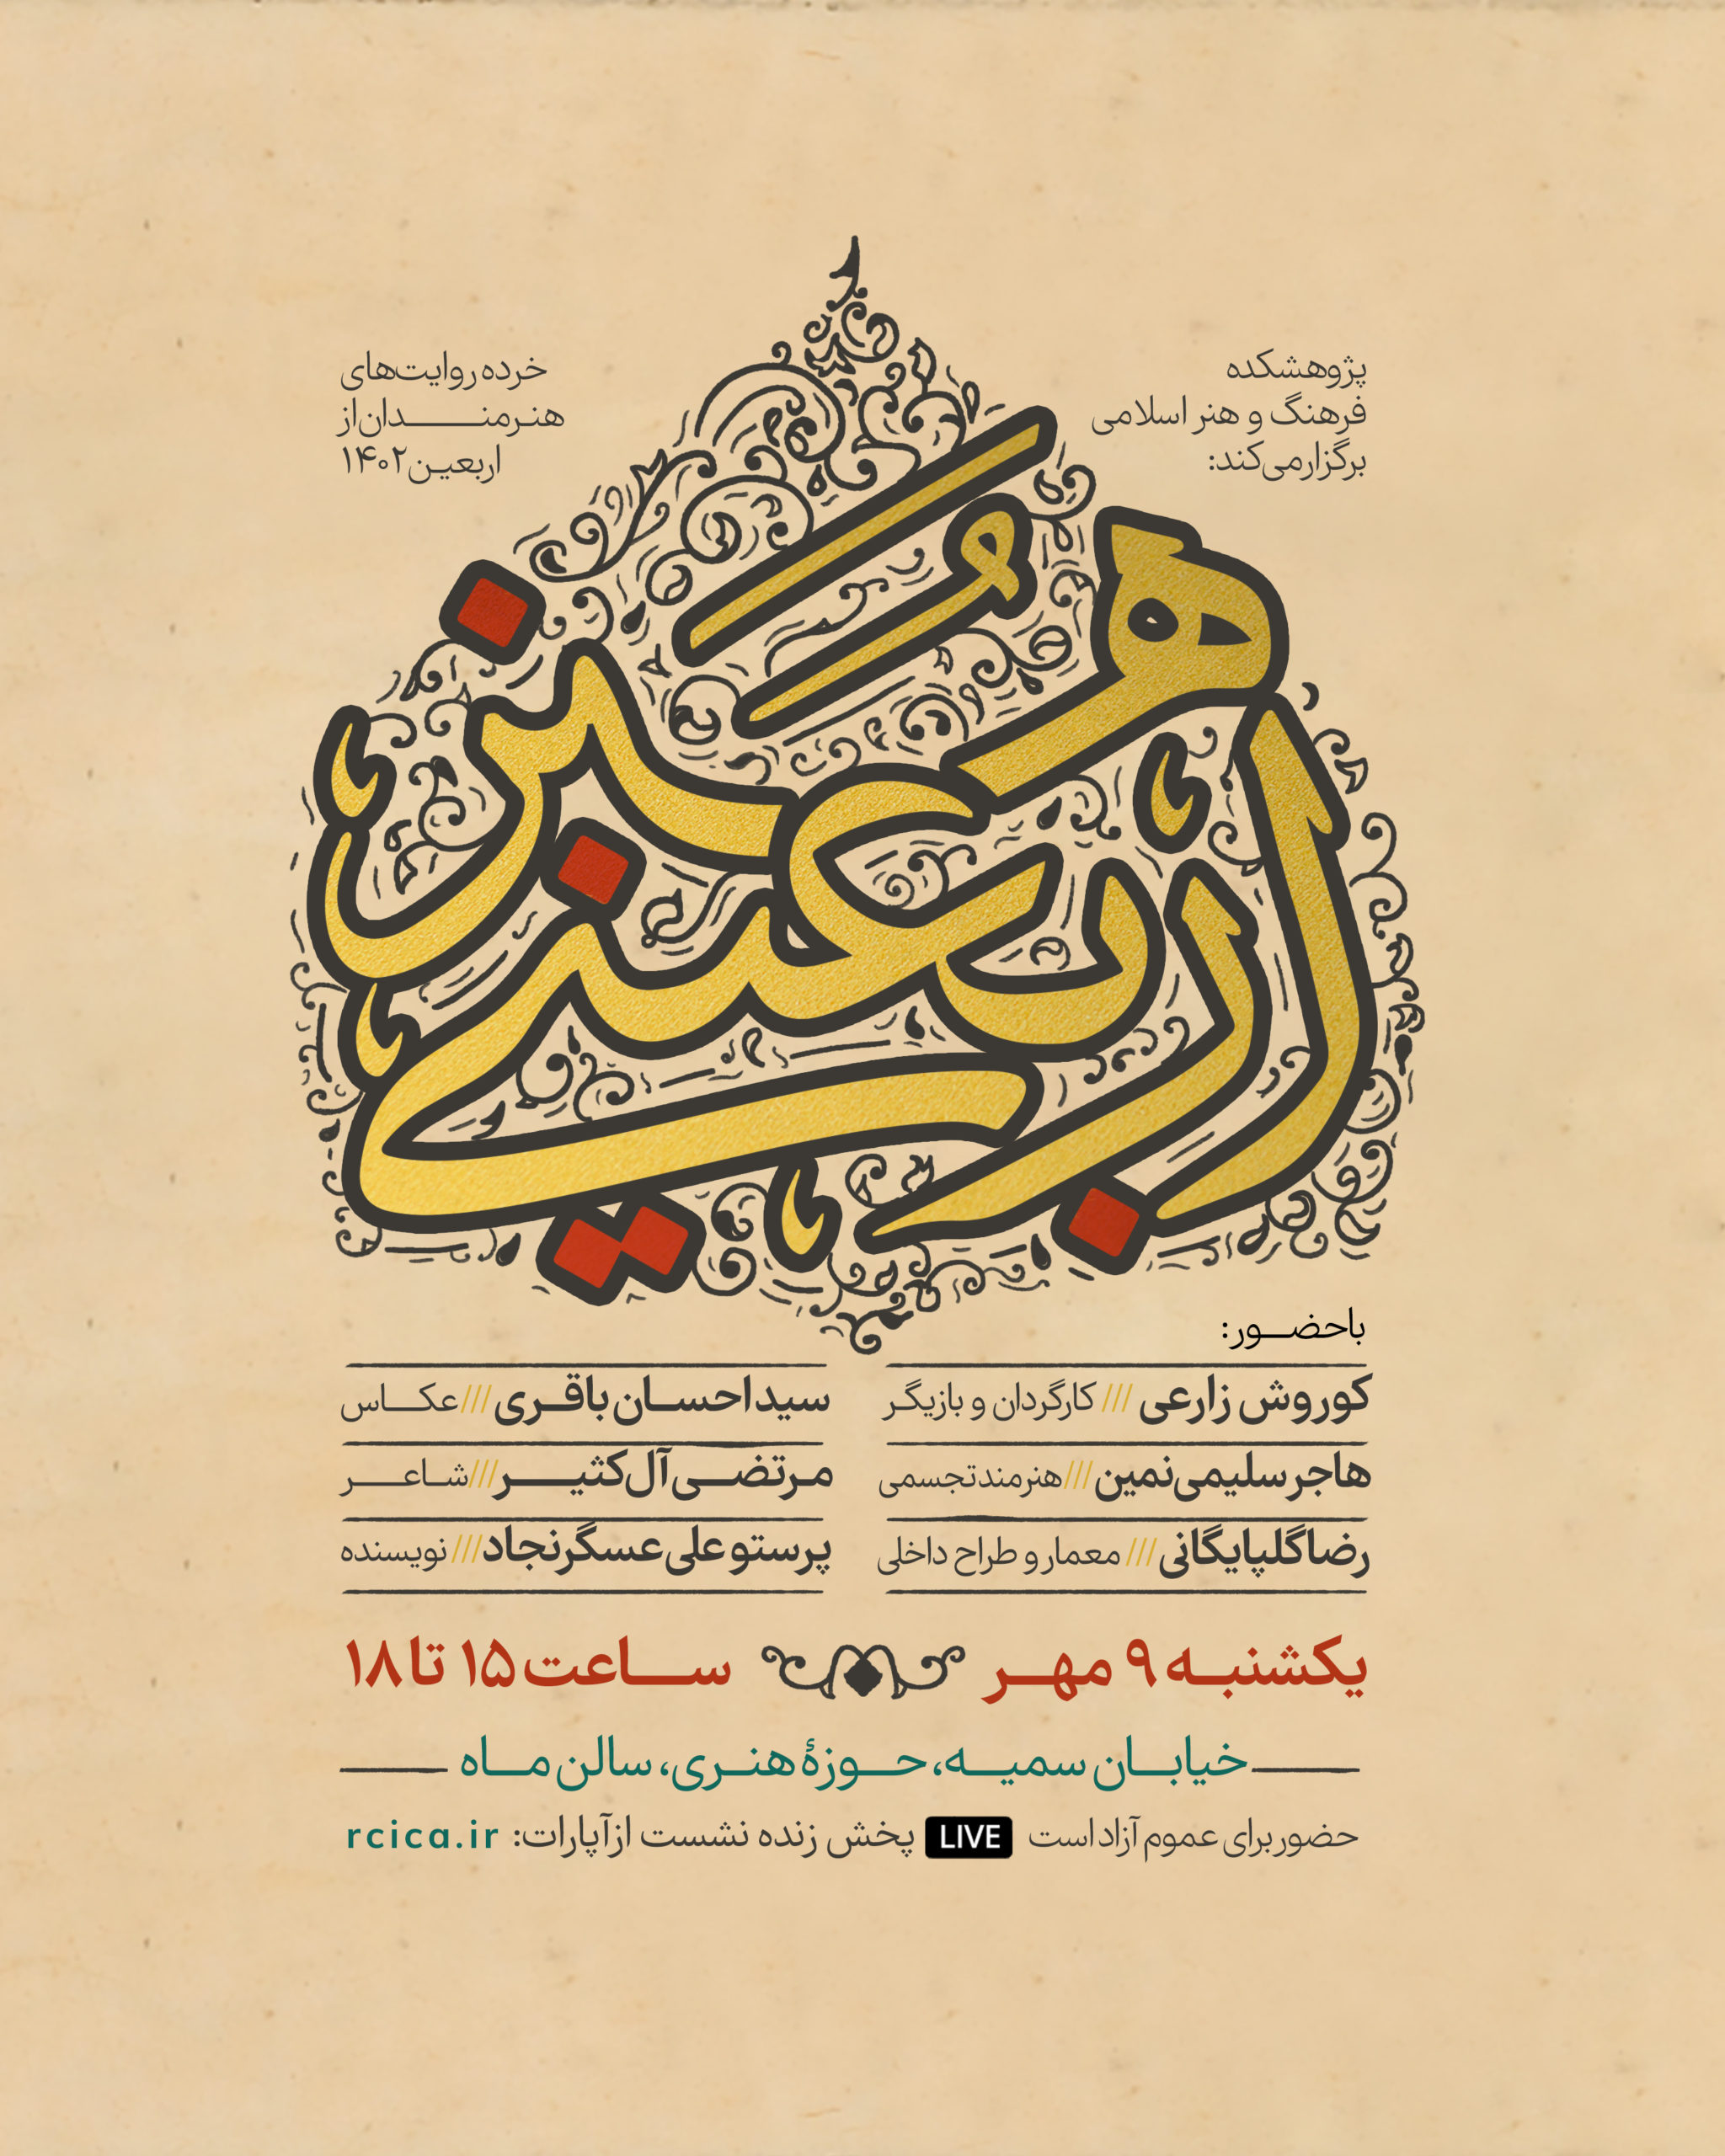 پژوهشکده
فرهنگ و هنر اسلامی
برگزار می‌کند:
خرده روایت‌های
هنرمندان از
اربعین ۱۴۰۲
با حضور:
کوروش زارعی /// کارگردان و بازیگر
سید احسان باقری /// عکاس
هاجر سلیمی نمین /// هنرمند تجسمی
مرتضی آل کثیر /// شاعر
رضا گلپایگانی /// معمار و طراح داخلی
پرستو علی عسگرنجاد /// نویسنده
یکشنبه ۹ مهر ساعت ۱۵ تا ۱۸
خیابان سمیه، حوزهٔ هنری، سالن ماه
حضور برای عموم آزاد است LIVE پخش زنده نشست از آپارات: rcica.ir